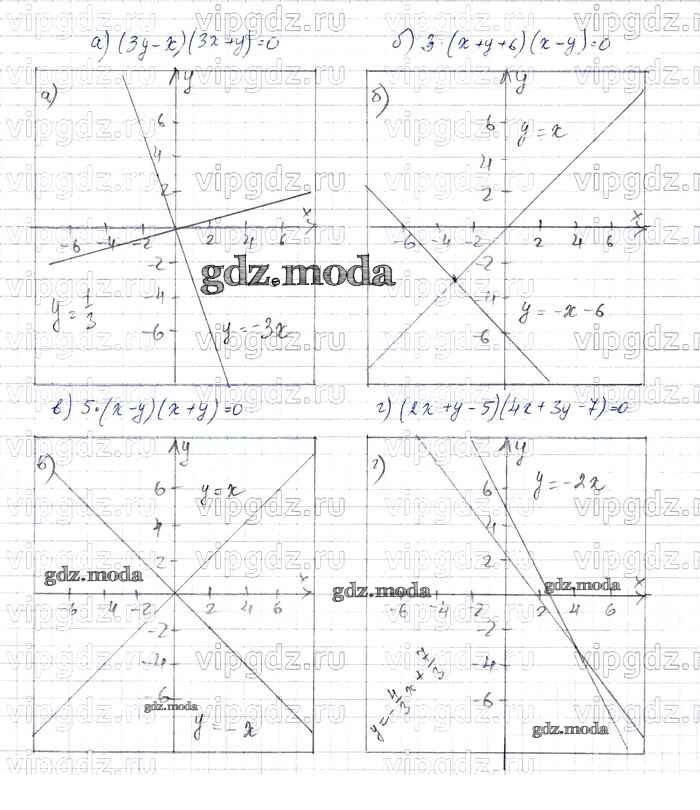 а) (3y-x)(3x+y)=0
б) 3·(x+y+6)(x-y)=0
а)
y
6
4
2
-6 -4 -2 2 4 6 x
-2
-4
-6
y = 1/3
y = -3x
gdz.moda
б)
y
6
4
2
-6 -4 -2 2 4 6 x
-2
-4
-6
y = x
y = -x-6
в) 5·(x-y)(x+y)=0
г) (2x+y-5)(4x+3y-7)=0
в)
y
6
4
2
-6 -4 -2 2 4 6 x
-2
-4
-6
y = x
y = -x
gdz.moda
gdz.moda
г)
y
6
4
2
-6 -4 -2 2 4 6 x
-2
-4
-6
y = -2x
y = -4/3x + 7/3
gdz.moda
gdz.moda
gdz.moda
vipgdz.ru